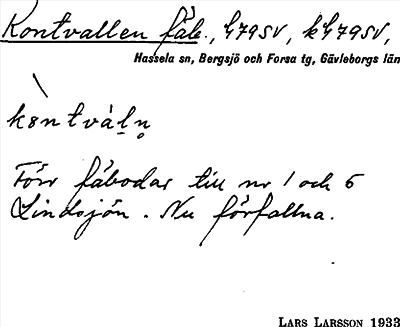 Kontvallen fäb., 479SV, k479SV,
Hassela sn, Bergsjö och Forsa tg, Gävleborgs län
Förr fäbodar till nr 1 och 6
Lindsjön. Nu förfallna.
LARS LARSSON 1933